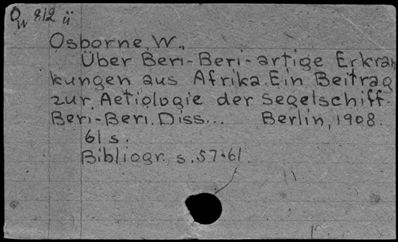 Ow 812 ü
Osborne, W.,
Über Beri-Beri-artige Erkran
kungen aus Afrika. Ein Beitrag
zur Aetiologie der Segelschiff-
Beri-Beri. Diss... Berlin, 1908.
61 s.
Bibliogr. s. 57-61